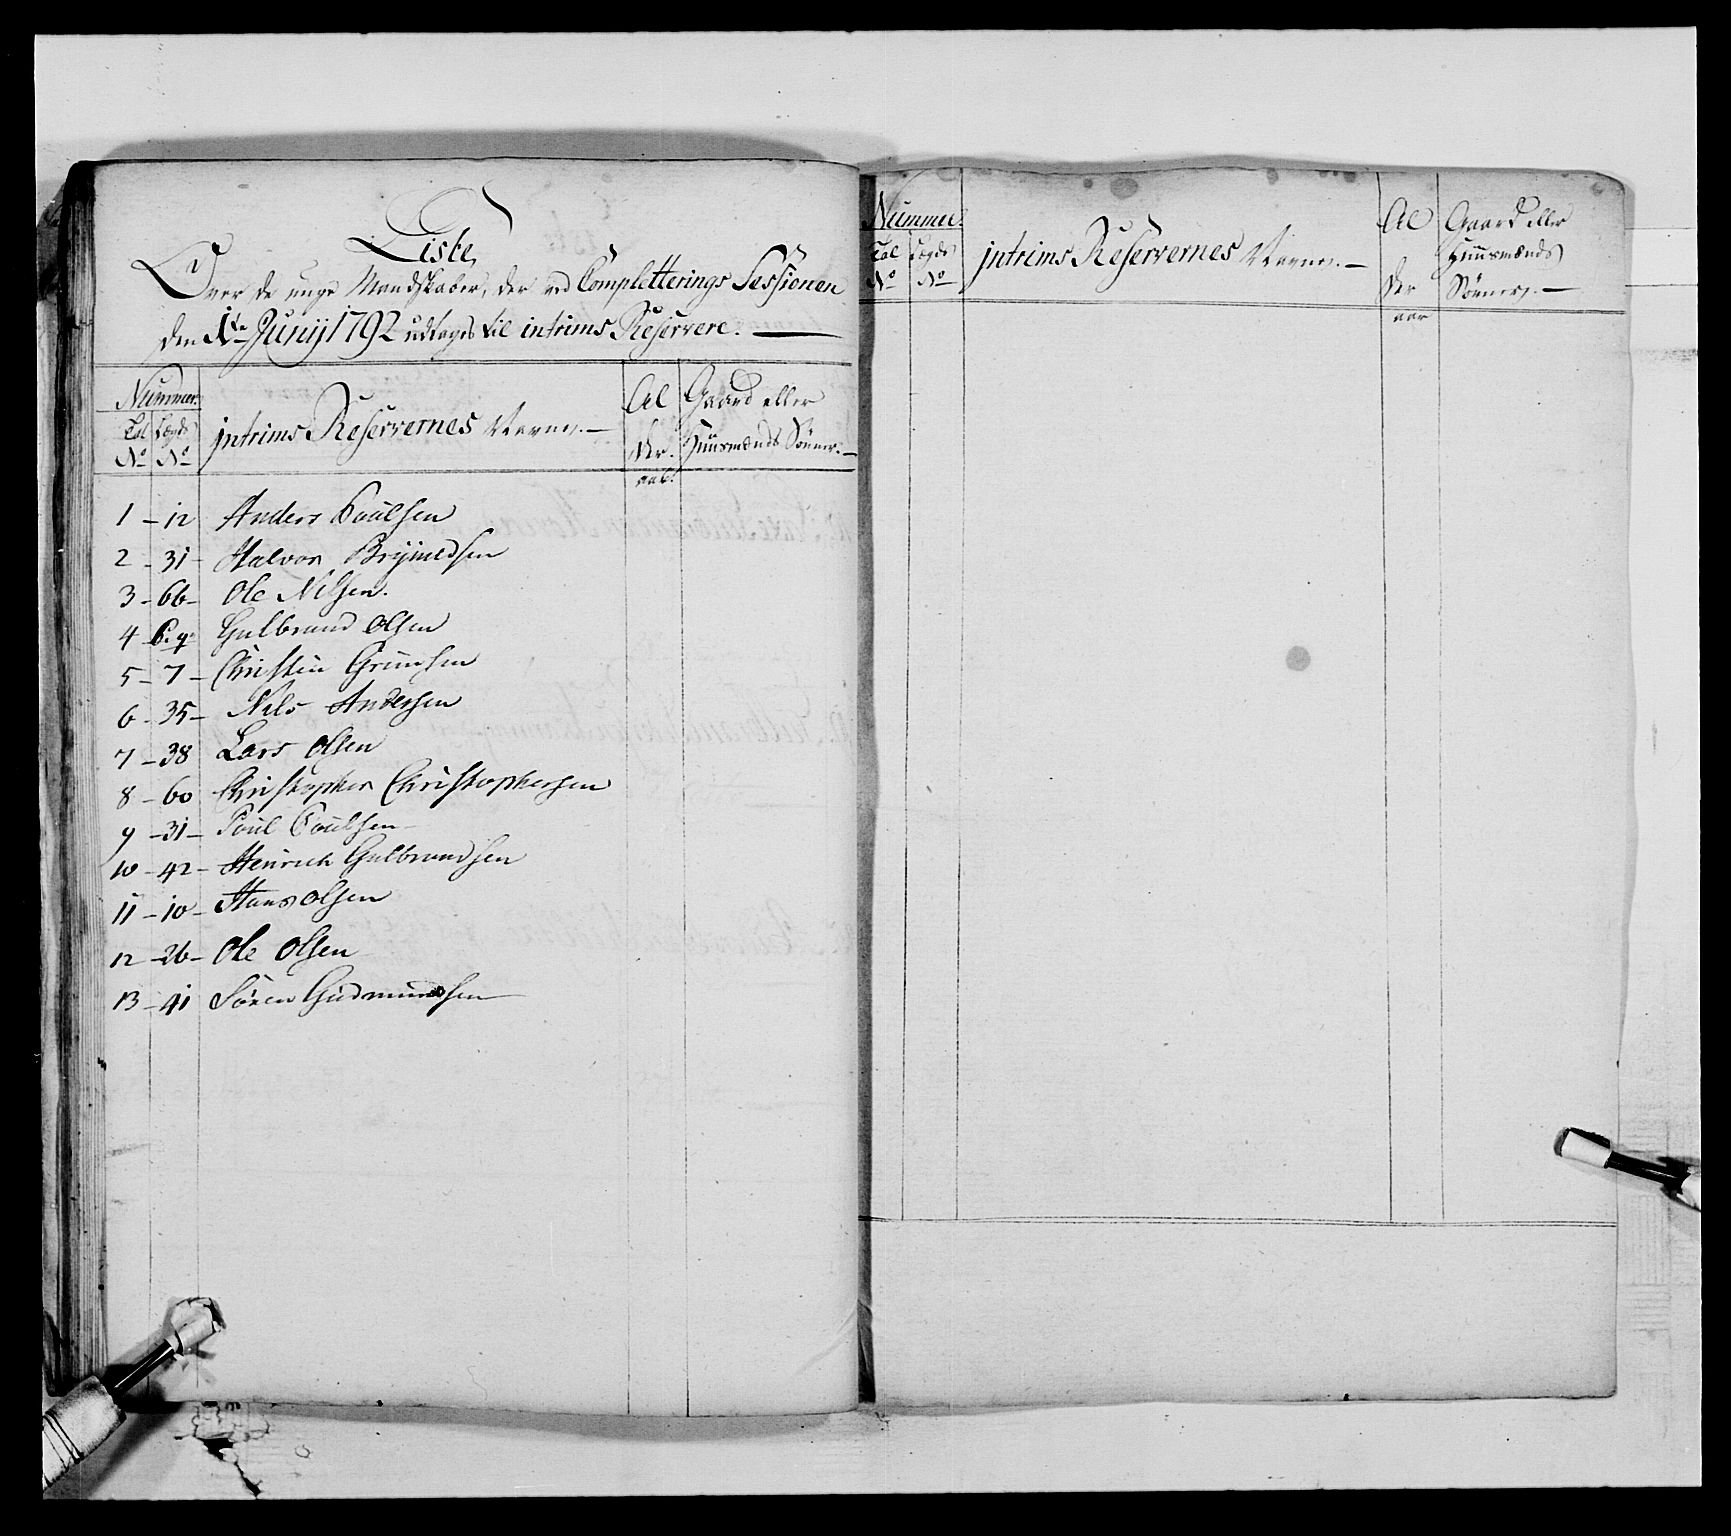 Liste,
Over de unge Mandskaber, der ved Completterings Sessionen
den 1te Junij 1792 udtages til intrims Reservere.
Nummer. Al Gaard eller
Tal Lægds intrims Reservernes Navne.— der. Huusmænds Sønner.—
No No aar.
1 – 12 Anders Poulsen
2 – 31 – Halvor Brynildsen
3 – 66 – Ole Nilsen.
4 Gulbrand Olsen
5 – 7 – Christen
6 – 35 – Nils Andersen
7 – 38 Lars Olsen
8 – 60 Christopher Christophersen
9 – 31 – Poul Poulsen
10 – 42 – Henrich Gulbrandsen
11 – 10 – Hans Olsen
12 – 26 – Ole Olsen
13 – 41 Sören Gudmundsen
Nummer. Al Gaard eller
Tal Lægds intrims Reservernes Navne.— der Huusmænds
No No aar Sönner.—